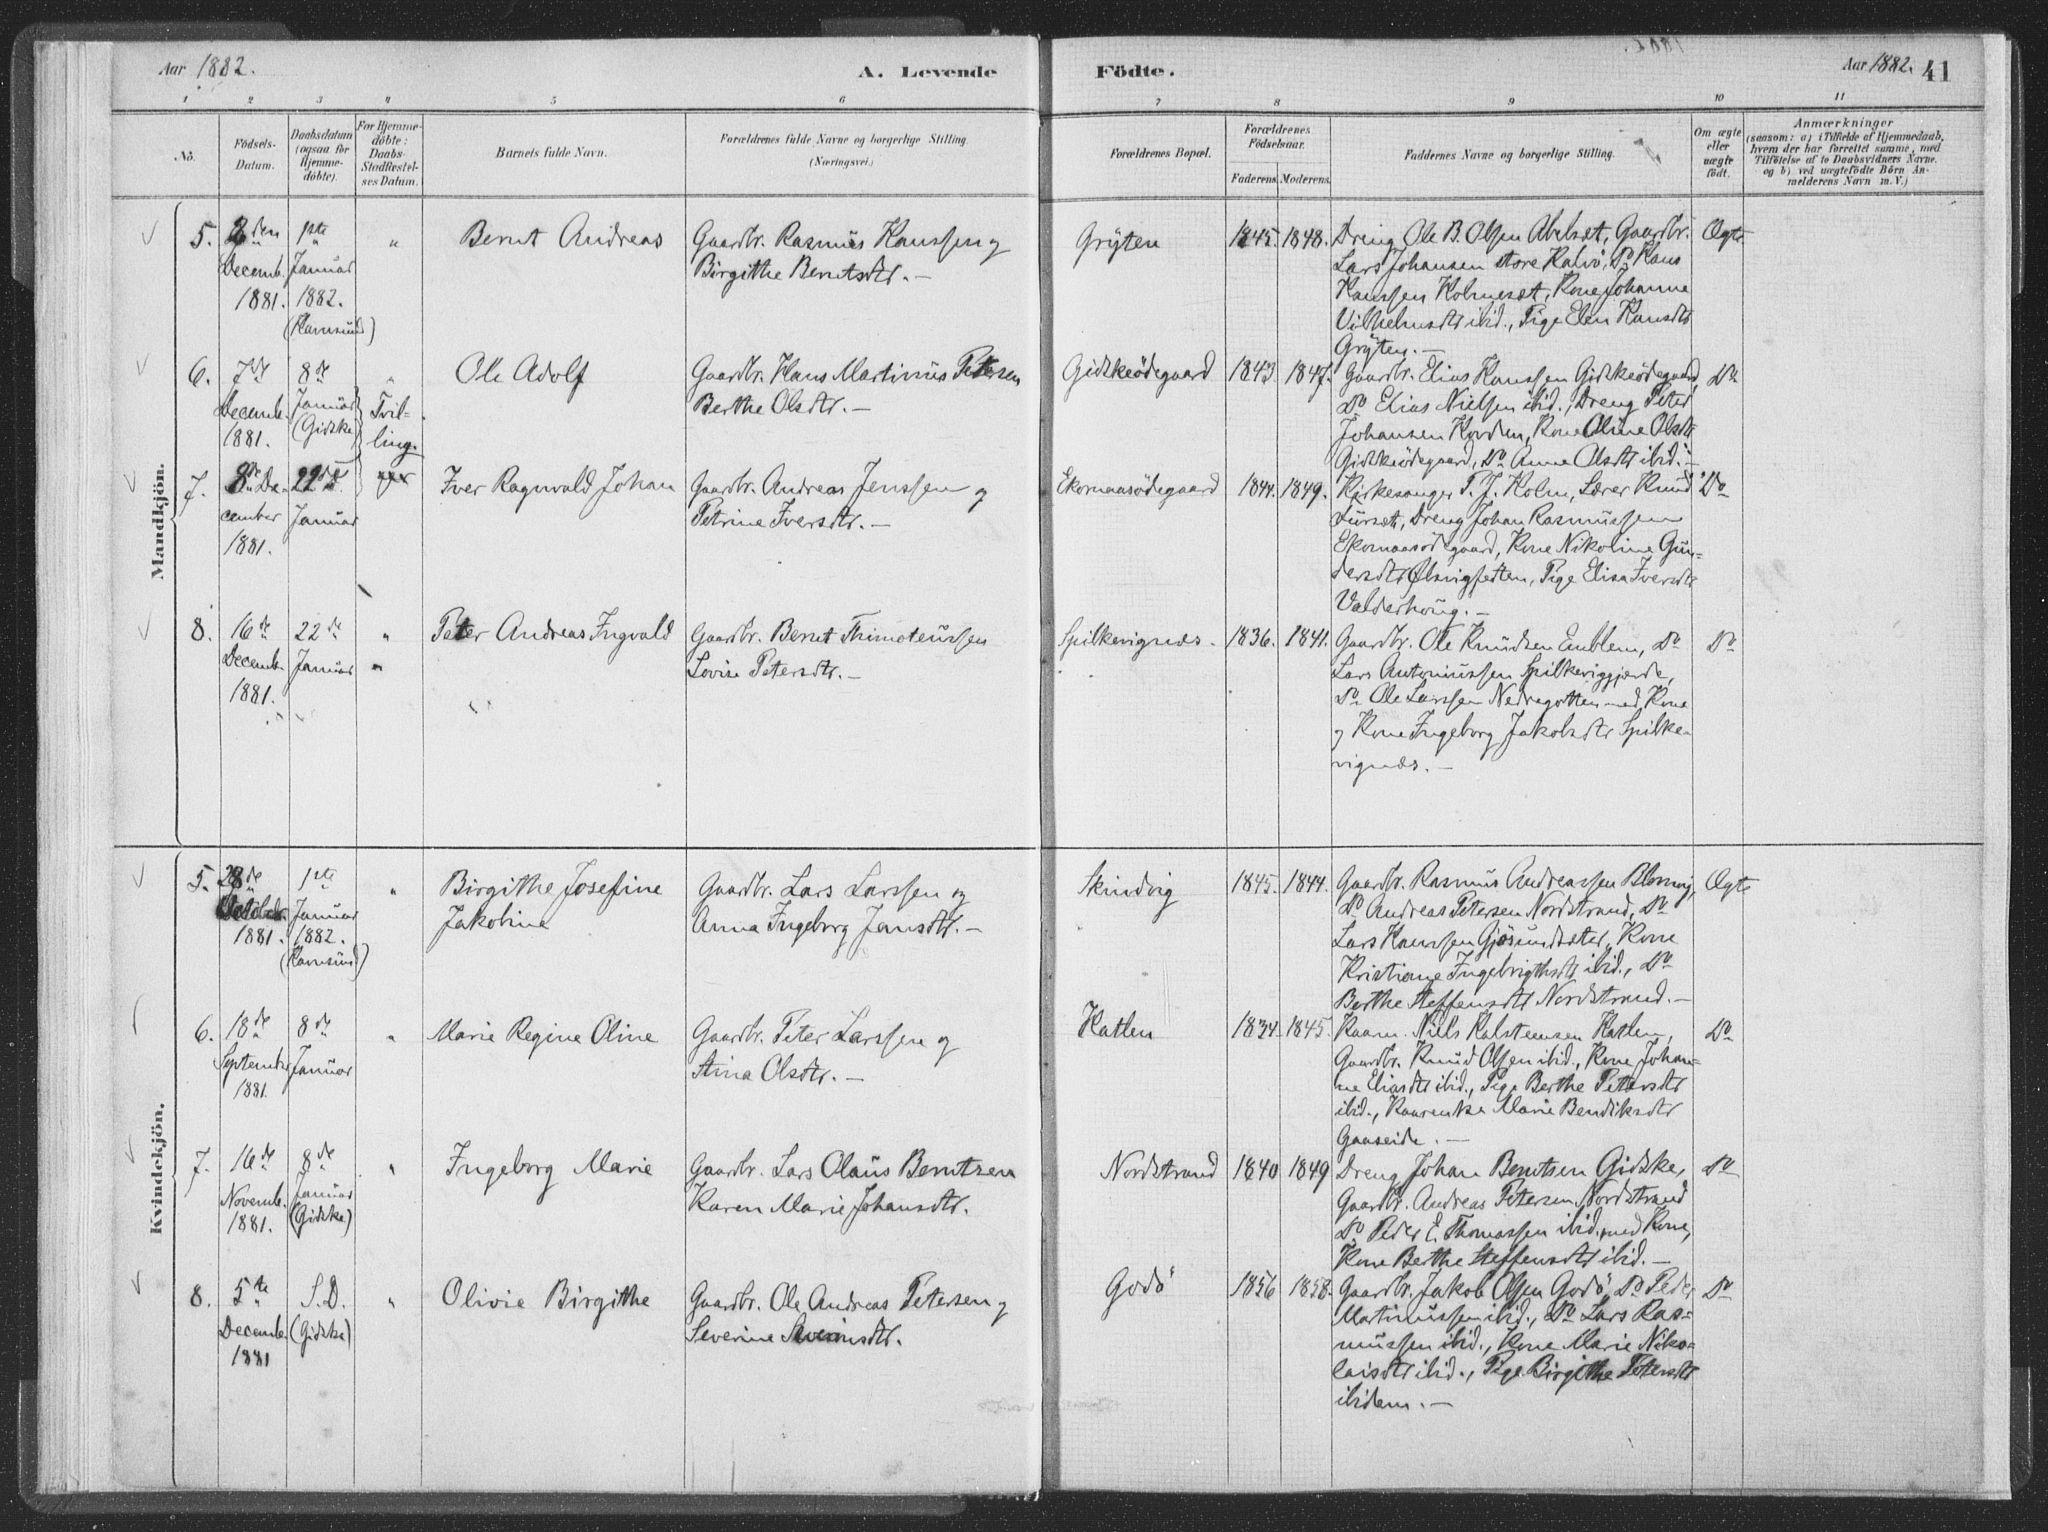 Aar 1882.
A. Levende
Födte.
Aar 1882.
41
1 2 3 4 5 6 7 8 9 10 11
No.
Födsels-
Datum.
Daabsdatum
(ogsaa for
Hjemme-
döbte).
For Hjemme-
döbte:
Daabs-
Stadfæstel-
ses Datum.
Barnets fulde Navn.
Forældrenes fulde Navne og borgerlige Stilling
(Næringsvei.)
Forældrenes Bopæl.
Forældrenes
Födselsaar.
Faderens. Moderens.
Faddernes Navne og borgerlige Stilling.
Om ægte
eller
uægte
födt.
Anmærkninger
(saasom: a) i Tilfælde af Hjemmedaab,
hvem der har forrettet samme, med
Tilföielse af to Daabsvidners Navne.
og b) ved uægtefödte Börn An-
melderens Navn m.V.)
Mandkjön.
5.
2den
Decemb.
1881.
1ste
Januar
1882.
(Hamsund)
"
Bernt Andreas
Gaardbr. Rasmus Hanssen og
Birgithe Berntsdtr. —
Gryten
1845.
1848.
Dreng Ole B. Olsen Abelsæt, Gaardbr.
Lars Johansen store Kalvö, Do Hans
Hanssen Holmesæt, Kone Johanne
Vilhelmsdtr ibid., Pige Elen Hansdtr
Gryten. —
Ægte
6.
7de
Decemb.
1881.
8de
Januar
(Gidske)
"
Tvil-
ling.
Ole Adolf
Gaardbr. Hans Martinus Petersen
Berthe Olsdtr. —
Gidskeödegaard
1843
1847.
Gaardbr. Elias Hanssen Gidskeödegaard,
Do Elias Nielsen ibid., Dreng Peter
Johansen Hovden, Kone Oline Olsdtr
Gidskeödegaard, Do Anne Olsdtr ibid. —
Do
7.
8de De-
cember
1881.
22de
Januar
Iver Ragnvald Johan
Gaardbr. Andreas Jenssen og
Petrine Iversdtr. —
Ekornaasödegaard
1844.
1849.
Kirkesanger P. J. Holm, Lærer Knud
Dreng Johan Rasmussen
Ekornaasödegaard, Kone Nikoline Gun-
dersdtr Ølsvigfedten, Pige Elisa Iversdtr
Valderhoug. —
Do
8.
16de
Decemb.
1881.
22de
Januar
"
"
Peter Andreas Ingvald
Gaardbr. Bernt Thimoteussen
Lovise Petersdtr. —
Spilkevignæs.
1836.
1841.
Gaardbr. Ole Knudsen Emblem, Do
Lars Antoniussen Spilkeviggjerde,
Do Ole Larssen Nedregotten med Kone
og Kone Ingeborg Jakobsdtr Spilke-
vignæs. —
Do
Kvindekjön.
5.
28de
October
1881.
1ste
Januar
1882.
(Hamsund)
"
Birgithe Josefine
Jakobine
Gaardbr. Lars Larssen og
Anna Ingeborg Jensdtr. —
Skindvig
1845.
1844.
Gaardbr. Rasmus Andreassen Blomvig,
Do Andreas Petersen Nordstrand, Do
Lars Hanssen Gjösundsæter, Kone
Kristiane Ingebrigthsdtr ibid., Do
Berthe Steffensdtr Nordstrand. —
Ægte
6.
18de
September
1881.
8de
Januar
"
Marie Regine Oline
Gaardbr. Peter Larssen og
Stina Olsdtr. —
Hatlen
1834
1845.
Kaarm. Niels Halstensen Hatlen,
Gaardbr. Knud Olsen ibid., Kone Johan-
ne Eliasdtr ibid., Pige Berthe Petersdtr
ibid., Kaarenke Marie Bendiksdtr
Gaaseide. —
Do
7.
16de
Novemb.
1881.
8de
Januar
(Gidske)
"
Ingeborg Marie
Gaardbr. Lars Olaus Berntsen
Karen Marie Johansdtr.
Nordstrand
1840
1849
Dreng Johan Berntsen Gidske,
Gaardbr. Andreas Petersen Nordstrand
Do Peder E. Thomassen ibid. med Kone,
Kone Berthe Steffensdtr ibid. —
Do
8.
5te
Decemb.
1881
S.D.
(Gidske)
"
Olivie Birgithe
Gaardbr. Ole Andreas Petersen og
Severine Severinsdtr.
Godö
1856
1858.
Gaardbr. Jakob Olsen Godö, Do Peder
Martinussen ibid., Do Lars Ras-
mussen ibid., Kone Marie Niko-
laisdtr ibid., Pige Birgithe Petersdtr
ibidem. —
Do